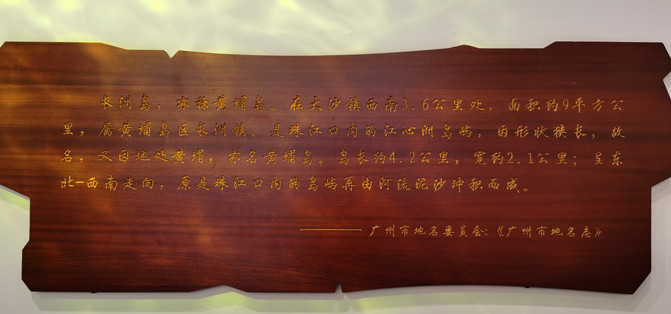 长洲岛，亦称黄埔岛。在大沙镇西南3.6公里处，面积约9平方公
里，属黄埔岛区长洲镇，是珠江口内的江心洲岛屿，因形状狭长，故
名，又因地处黄埔，亦名黄埔岛，岛长约4.2公里，宽约2.1公里；呈东
北-西南走向，原是珠江口内的岛屿再由河流泥沙冲积而成。
———— 广州市地名委员会：《广州市地名志》